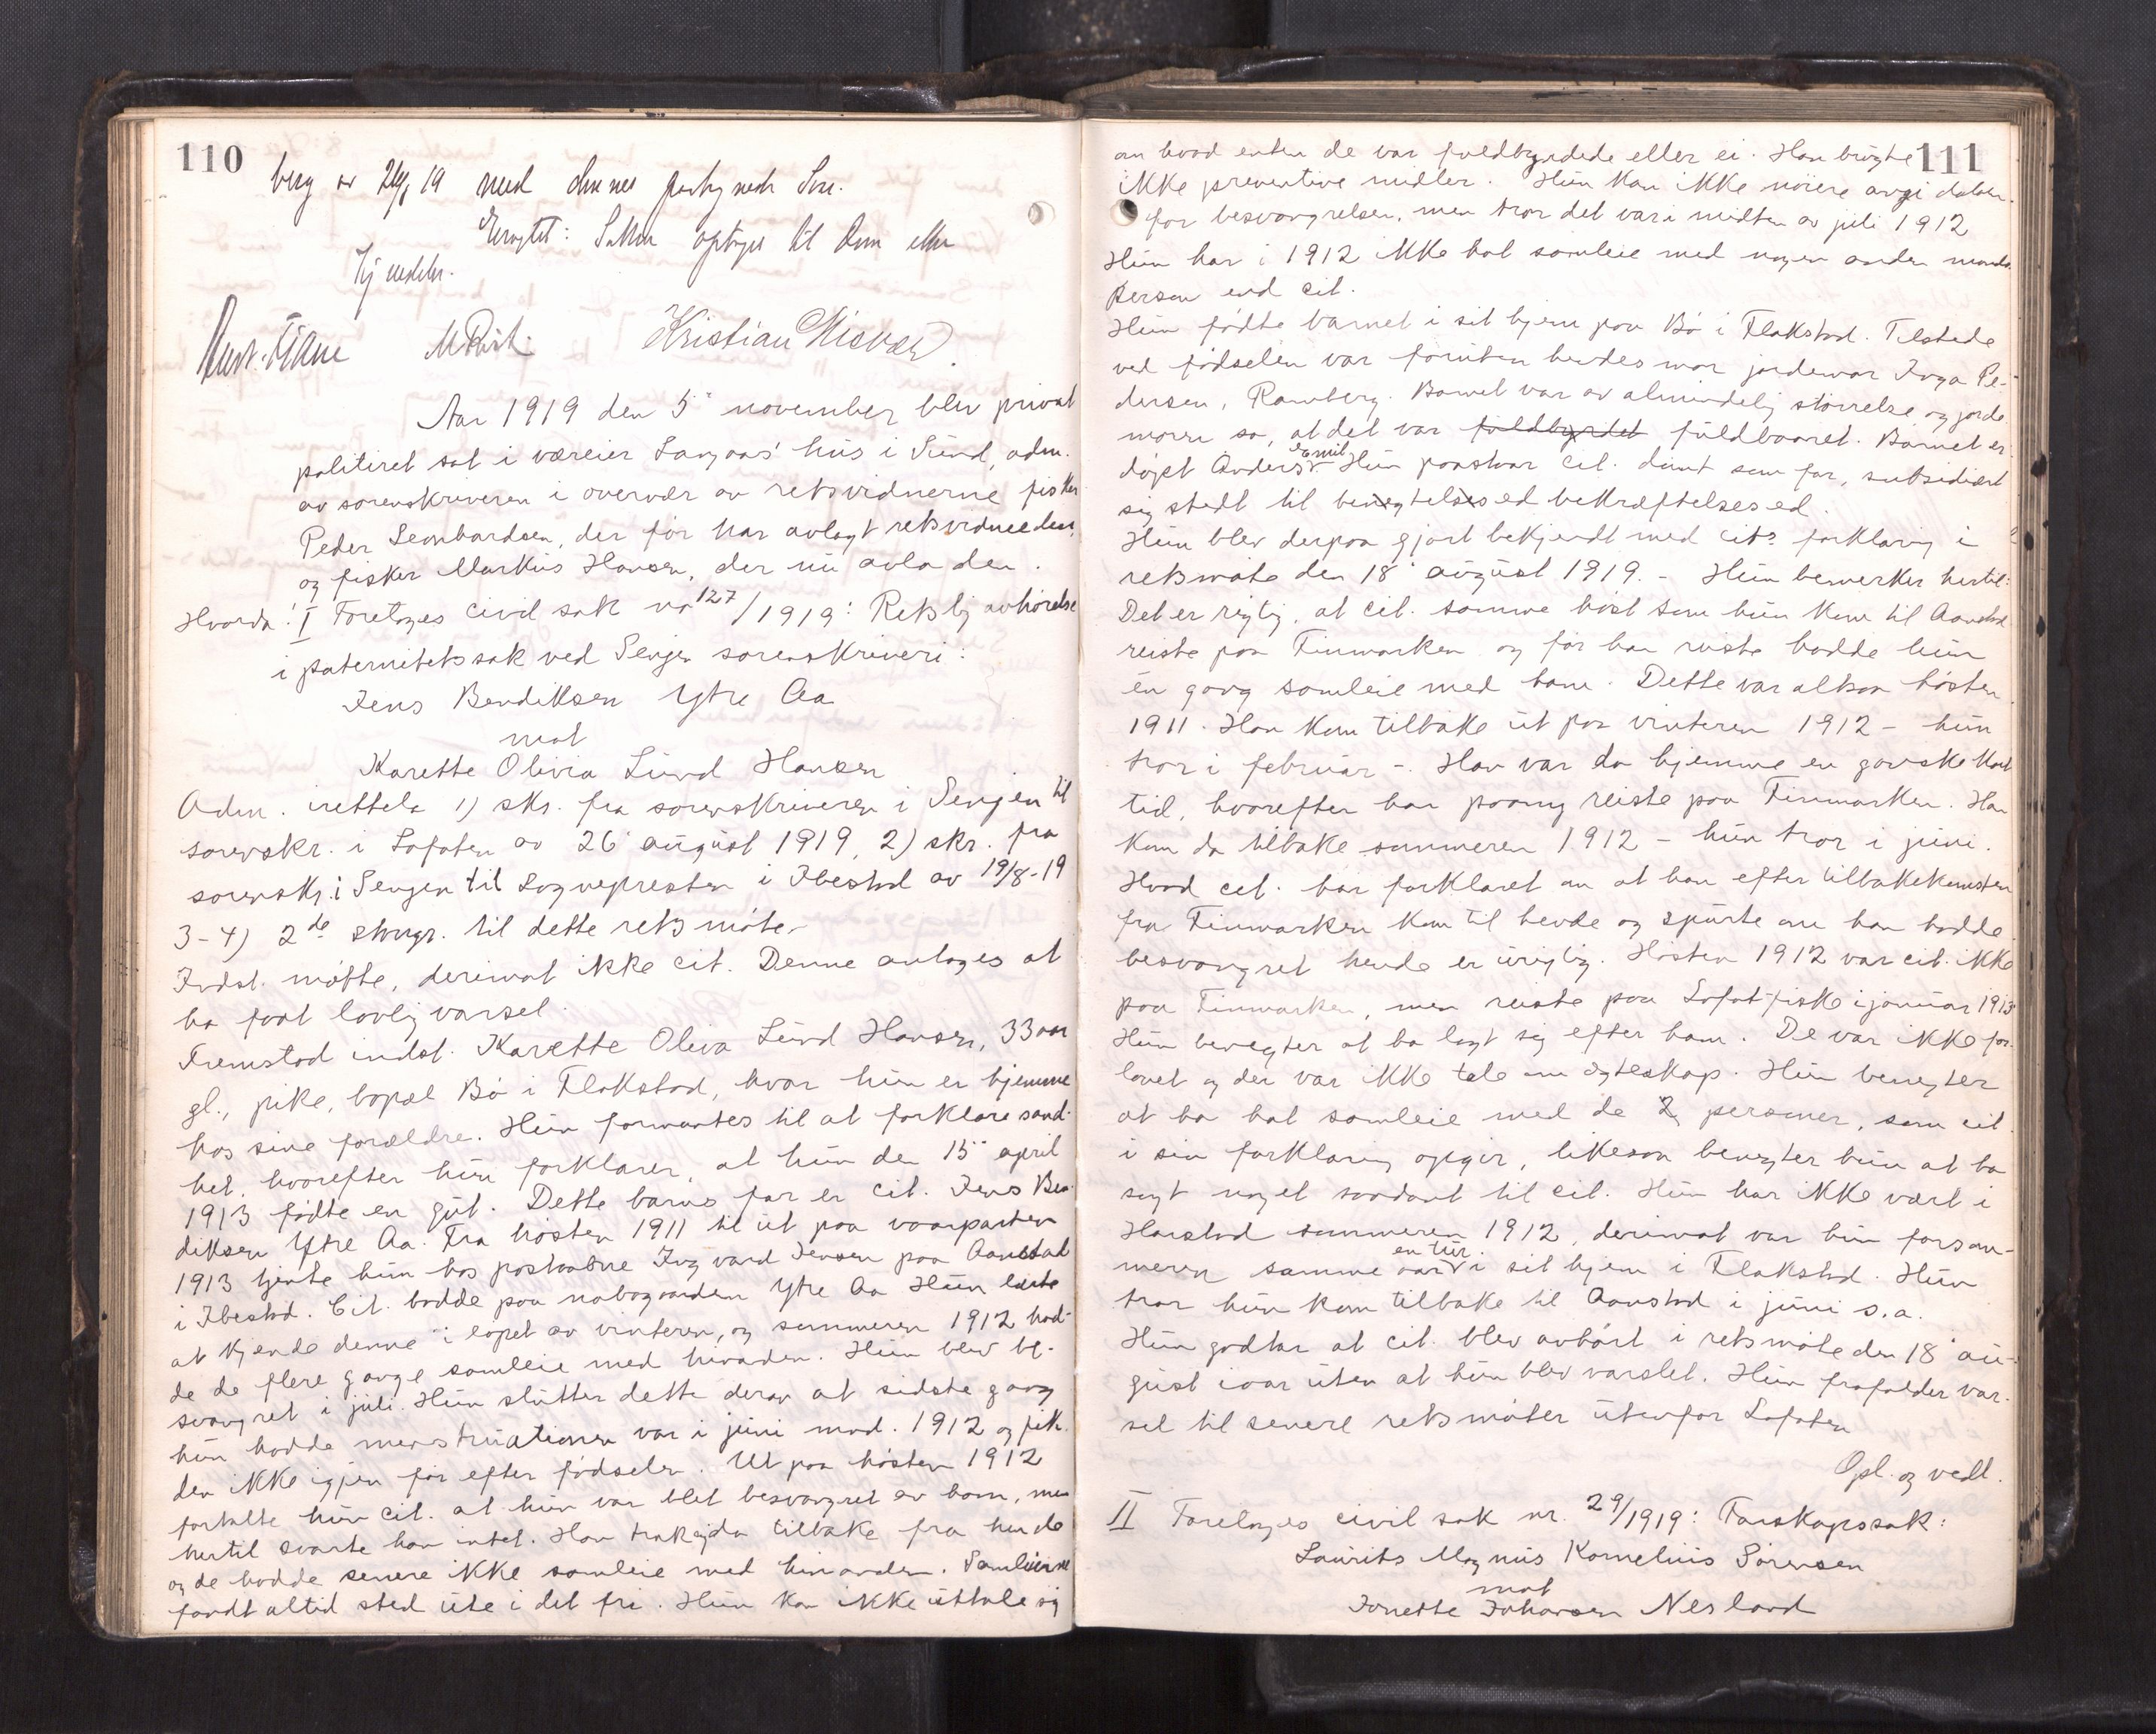 110
berg av 26/8 19 med dennes paategnede
Eragtet: Saken optages til dom eller
Kjendelse.
Kristian
Aar 1919 den 5' november blev privat
politiret sat i væreier Langaas' hus i Sund, adm.
av sorenskriveren i overvær av retsvidnerne fisker
Peder Leonhardsen, der før har avlagt retsvidneeden,
og fisker Markus Hansen, der nu avla den.
Hvorda: I Foretages civil sak nr 127/1919: Retslig avhørelse
i paternitetssak ved Senjen sorenskriveri:
Jens Bendiksen Ytre Aa
mot
Karette Olivia Lund Hansen
Adm. irettela 1) skr. fra sorenskriveren i Senjen til
sorenskr. i Lofoten av 26' august 1919, 2) skr. fra
sorenskr. i Senjen til sognepresten i Ibestad av 19/8-19
3-4) 2de stevngr. til dette retsmøte.
Indst. møtte, derimot ikke cit. Denne antages at
ha faat lovlig varsel.
Fremstod indst. Karette Oliva Lund Hansen, 33 aar
gl., pike, bopæl Bø i Flakstad, hvor hun er hjemme
hos sine forældre. Hun formantes til at forklare sand-
het, hvorefter hun forklarer, at hun den 15' april
1913 fødte en gut. Dette barns far er cit. Jens Ben-
diksen Ytre Aa. Fra høsten 1911 til ut paa vaarparten
1913 tjente hun hos postaabne Ingvard Jensen paa Aanstad
i Ibestad. Cit. bodde paa nabogaarden Ytre Aa Hun lærte
at kjende denne i løpet av vinteren, og sommeren 1912 had-
de de flere gange samleie med hinanden. Hun blev be-
svangret i juli. Hun slutter dette derav at sidste gang
hun hadde menstruationen var i juni mnd. 1912 og fik
den ikke igjen før efter fødselen. Ut paa høsten 1912
fortalte hun cit. at hun var blet besvangret av ham, men
hertil svarte han intet. Han trak sig da tilbake fra hende
og de hadde senere ikke samleie med hinanden. Samleierne
fandt altid sted ute i det fri. Hun kan ikke uttale sig
111
om hvad enten de var fuldbyrdede eller ei. Han brugte
ikke preventive midler. Hun kan ikke nöiere angi datoen
for besvangrelsen, men tror det var i midten av juli 1912
Hun har i 1912 ikke hat samleie med nogen anden mands-
person end cit.
Hun fødte barnet i sit hjem paa Bø i Flakstad. Tilstede
ved fødselen var foruten hendes mor jordemor Inga Pe-
dersen, Ramberg. Barnet var av almindelig størrelse og jorde
moren sa, at det var fuldbyrdet fuldbaaret. Barnet er
døpt Anders Emil Hun paastaar cit. dømt som far, subsidiært
sig stedt til benegtelsesed bekræftelsesed.
Hun blev derpaa gjort bekjendt med cits forklaring i
retsmøte den 18' august 1919. - Hun bemerker hertil:
Det er rigtig, at cit. samme høst som hun kom til Aanstad
reiste paa Finmarken og før han reiste hadde hun
én gang samleie med ham. Dette var altsaa høsten
1911. Han kom tilbake ut paa vinteren 1912 - hun
tror i februar -. Han var da hjemme en ganske kort
tid, hvorefter han paany reiste paa Finmarken. Han
kom da tilbake sommeren 1912 - hun tror i juni.
Hvad cit. har forklaret om at han efter tilbakekomsten
fra Finmarken kom til hende og spurte om han hadde
besvangret hende er urigtig. Høsten 1912 var cit. ikke
paa Finmarken, men reiste paa Lofotfiske i januar 1913
Hun benegter at ha lagt sig efter ham. De var ikke for-
lovet og der var ikke tale om egteskap. Hun benegter
at ha hat samleie med de 2 personer, som cit.
i sin forklaring opgir, likesaa benegter hun at ha
sagt noget saadant til cit. Hun har ikke vært i
Harstad sommeren 1912, derimot var hun forsom-
meren samme aar en tur i sit hjem i Flakstad. Hun
tror hun kom tilbake til Aanstad i juni s.a.
Hun godtar at cit. blev avhørt i retsmøte den 18' au-
gust iaar uten at hun blev varslet. Hun frafalder var-
sel til senere retsmøter utenfor Lofoten
Opl. og vedt.
II Foretages civil sak nr. 29/1919: Farskapssak:
Laurits Magnus Kornelius Sørensen
mot
Jonette Johansen Nesland